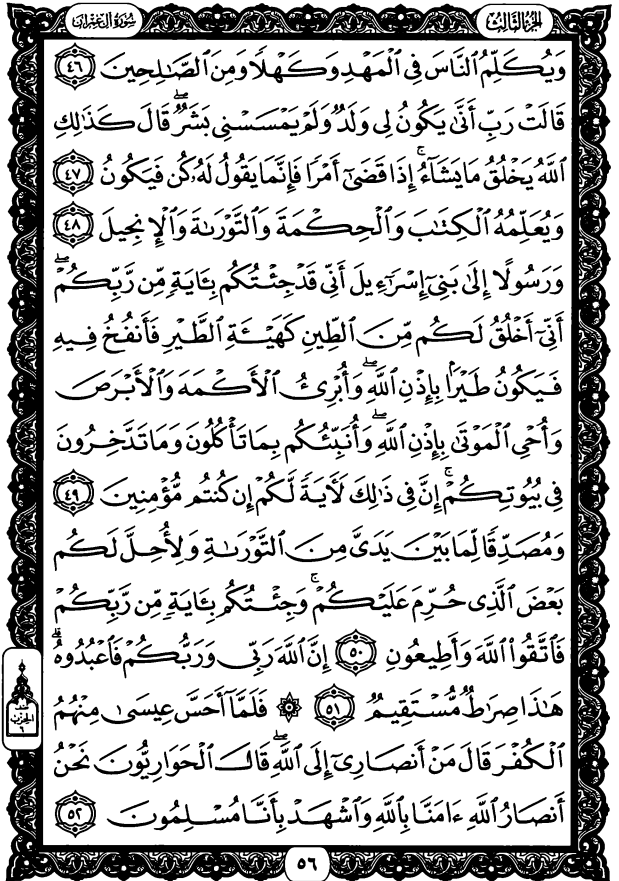 الجزء الثالث
سورة آل عمران
وَيُكَلِّمُ ٱلنَّاسَ فِى ٱلْمَهْدِ وَكَهْلًا وَمِنَ ٱلصَّـٰلِحِينَ ٤٦
قَالَتْ رَبِّ أَنَّىٰ يَكُونُ لِى وَلَدٌ وَلَمْ يَمْسَسْنِى بَشَرٌ ۖ قَالَ كَذَٰلِكِ
ٱللَّهُ يَخْلُقُ مَا يَشَآءُ ۚ إِذَا قَضَىٰٓ أَمْرًا فَإِنَّمَا يَقُولُ لَهُۥ كُن فَيَكُونُ ٤٧
وَيُعَلِّمُهُ ٱلْكِتَـٰبَ وَٱلْحِكْمَةَ وَٱلتَّوْرَىٰةَ وَٱلْإِنجِيلَ ٤٨
وَرَسُولًا إِلَىٰ بَنِىٓ إِسْرَٰٓءِيلَ أَنِّى قَدْ جِئْتُكُم بِـَٔايَةٍ مِّن رَّبِّكُمْ ۖ
أَنِّىٓ أَخْلُقُ لَكُم مِّنَ ٱلطِّينِ كَهَيْـَٔةِ ٱلطَّيْرِ فَأَنفُخُ فِيهِ
فَيَكُونُ طَيْرًۢا بِإِذْنِ ٱللَّهِ ۖ وَأُبْرِئُ ٱلْأَكْمَهَ وَٱلْأَبْرَصَ
وَأُحْىِ ٱلْمَوْتَىٰ بِإِذْنِ ٱللَّهِ ۖ وَأُنَبِّئُكُم بِمَا تَأْكُلُونَ وَمَا تَدَّخِرُونَ
فِى بُيُوتِكُمْ ۚ إِنَّ فِى ذَٰلِكَ لَـَٔايَةً لَّكُمْ إِن كُنتُم مُّؤْمِنِينَ ٤٩
وَمُصَدِّقًا لِّمَا بَيْنَ يَدَىَّ مِنَ ٱلتَّوْرَىٰةِ وَلِأُحِلَّ لَكُم
بَعْضَ ٱلَّذِى حُرِّمَ عَلَيْكُمْ ۚ وَجِئْتُكُم بِـَٔايَةٍ مِّن رَّبِّكُمْ
فَٱتَّقُوا۟ ٱللَّهَ وَأَطِيعُونِ ٥٠ إِنَّ ٱللَّهَ رَبِّى وَرَبُّكُمْ فَٱعْبُدُوهُ ۗ
هَـٰذَا صِرَٰطٌ مُّسْتَقِيمٌ ٥١ ۞ فَلَمَّآ أَحَسَّ عِيسَىٰ مِنْهُمُ
ٱلْكُفْرَ قَالَ مَنْ أَنصَارِىٓ إِلَى ٱللَّهِ ۖ قَالَ ٱلْحَوَارِيُّونَ نَحْنُ
أَنصَارُ ٱللَّهِ ءَامَنَّا بِٱللَّهِ وَٱشْهَدْ بِأَنَّا مُسْلِمُونَ ٥٢
الحزب
٦
٥٦